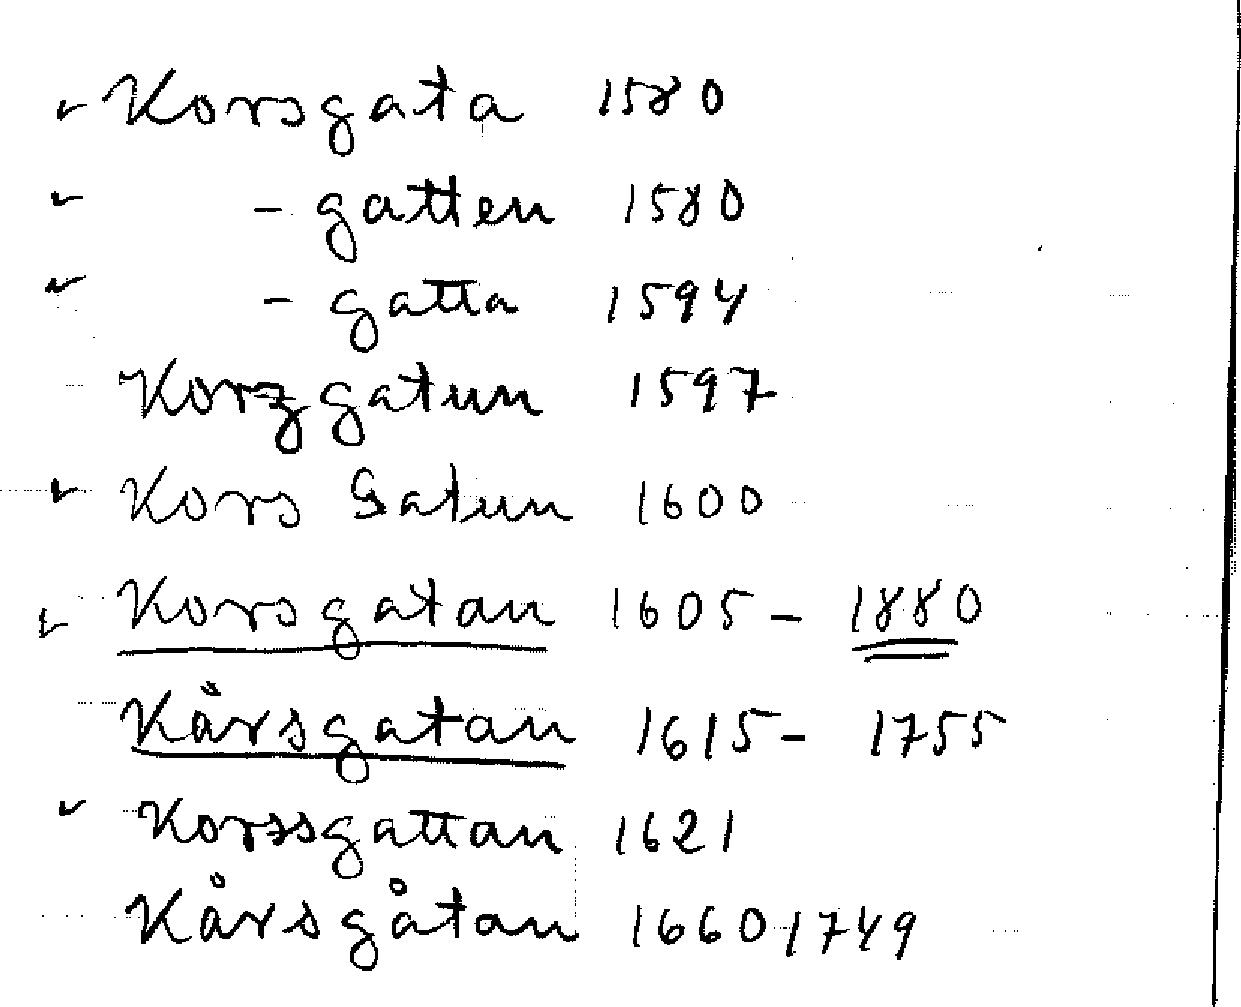 Korsgata 1580
- gatten 1580
- gatta 1594
Korzgatun 1597
Kors Gatun 1600
Korsgatan 1605 - 1880
Kårsgatan 1615 - 1755
Korssgattan 1621
Kårsgåtan 1660, 1749